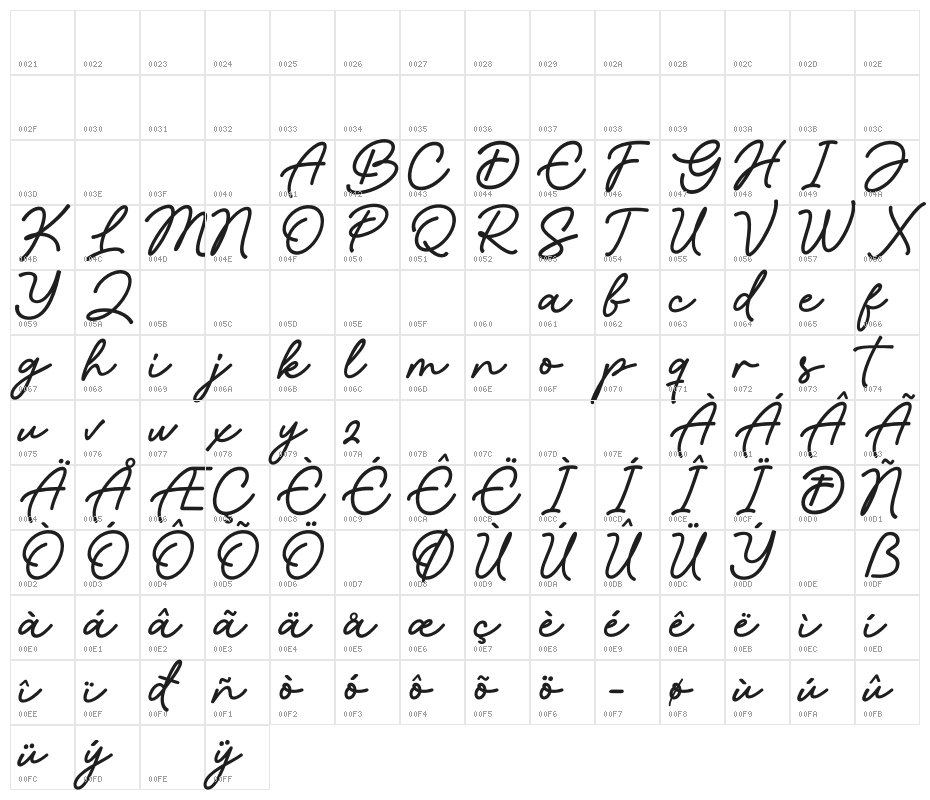 0021 0022 0023 0024 0025 0026 0027 0028 0029 002A 002B 002C 002D 002E
002F 0030 0031 0032 0033 0034 0035 0036 0037 0038 0039 003A 003B 003C
A B C D E F G H I J
003D 003E 003F 0040 0041 0042 0043 0044 0045 0046 0047 0048 0049 004A
K L M N O P Q R S T U V W X
004B 004C 004D 004E 004F 0050 0051 0052 0053 0054 0055 0056 0057 0058
Y Z a b c d e f
0059 005A 005B 005C 005D 005E 005F 0060 0061 0062 0063 0064 0065 0066
g h i j k l m n o p q r s t
0067 0068 0069 006A 006B 006C 006D 006E 006F 0070 0071 0072 0073 0074
u v w x y z À Á Â Ã
0075 0076 0077 0078 0079 007A 007B 007C 007D 007E 00C0 00C1 00C2 00C3
Ä Å Æ Ç È É Ê Ë Ì Í Î Ï Ð Ñ
00C4 00C5 00C6 00C7 00C8 00C9 00CA 00CB 00CC 00CD 00CE 00CF 00D0 00D1
Ò Ó Ô Õ Ö Ø Ù Ú Û Ü Ý ß
00D2 00D3 00D4 00D5 00D6 00D7 00D8 00D9 00DA 00DB 00DC 00DD 00DE 00DF
à á â ã ä å æ ç è é ê ë ì í
00E0 00E1 00E2 00E3 00E4 00E5 00E6 00E7 00E8 00E9 00EA 00EB 00EC 00ED
î ï đ ñ ò ó ô õ ö - ø ù ú û
00EE 00EF 00F0 00F1 00F2 00F3 00F4 00F5 00F6 00F7 00F8 00F9 00FA 00FB
ü ý ÿ
00FC 00FD 00FE 00FF